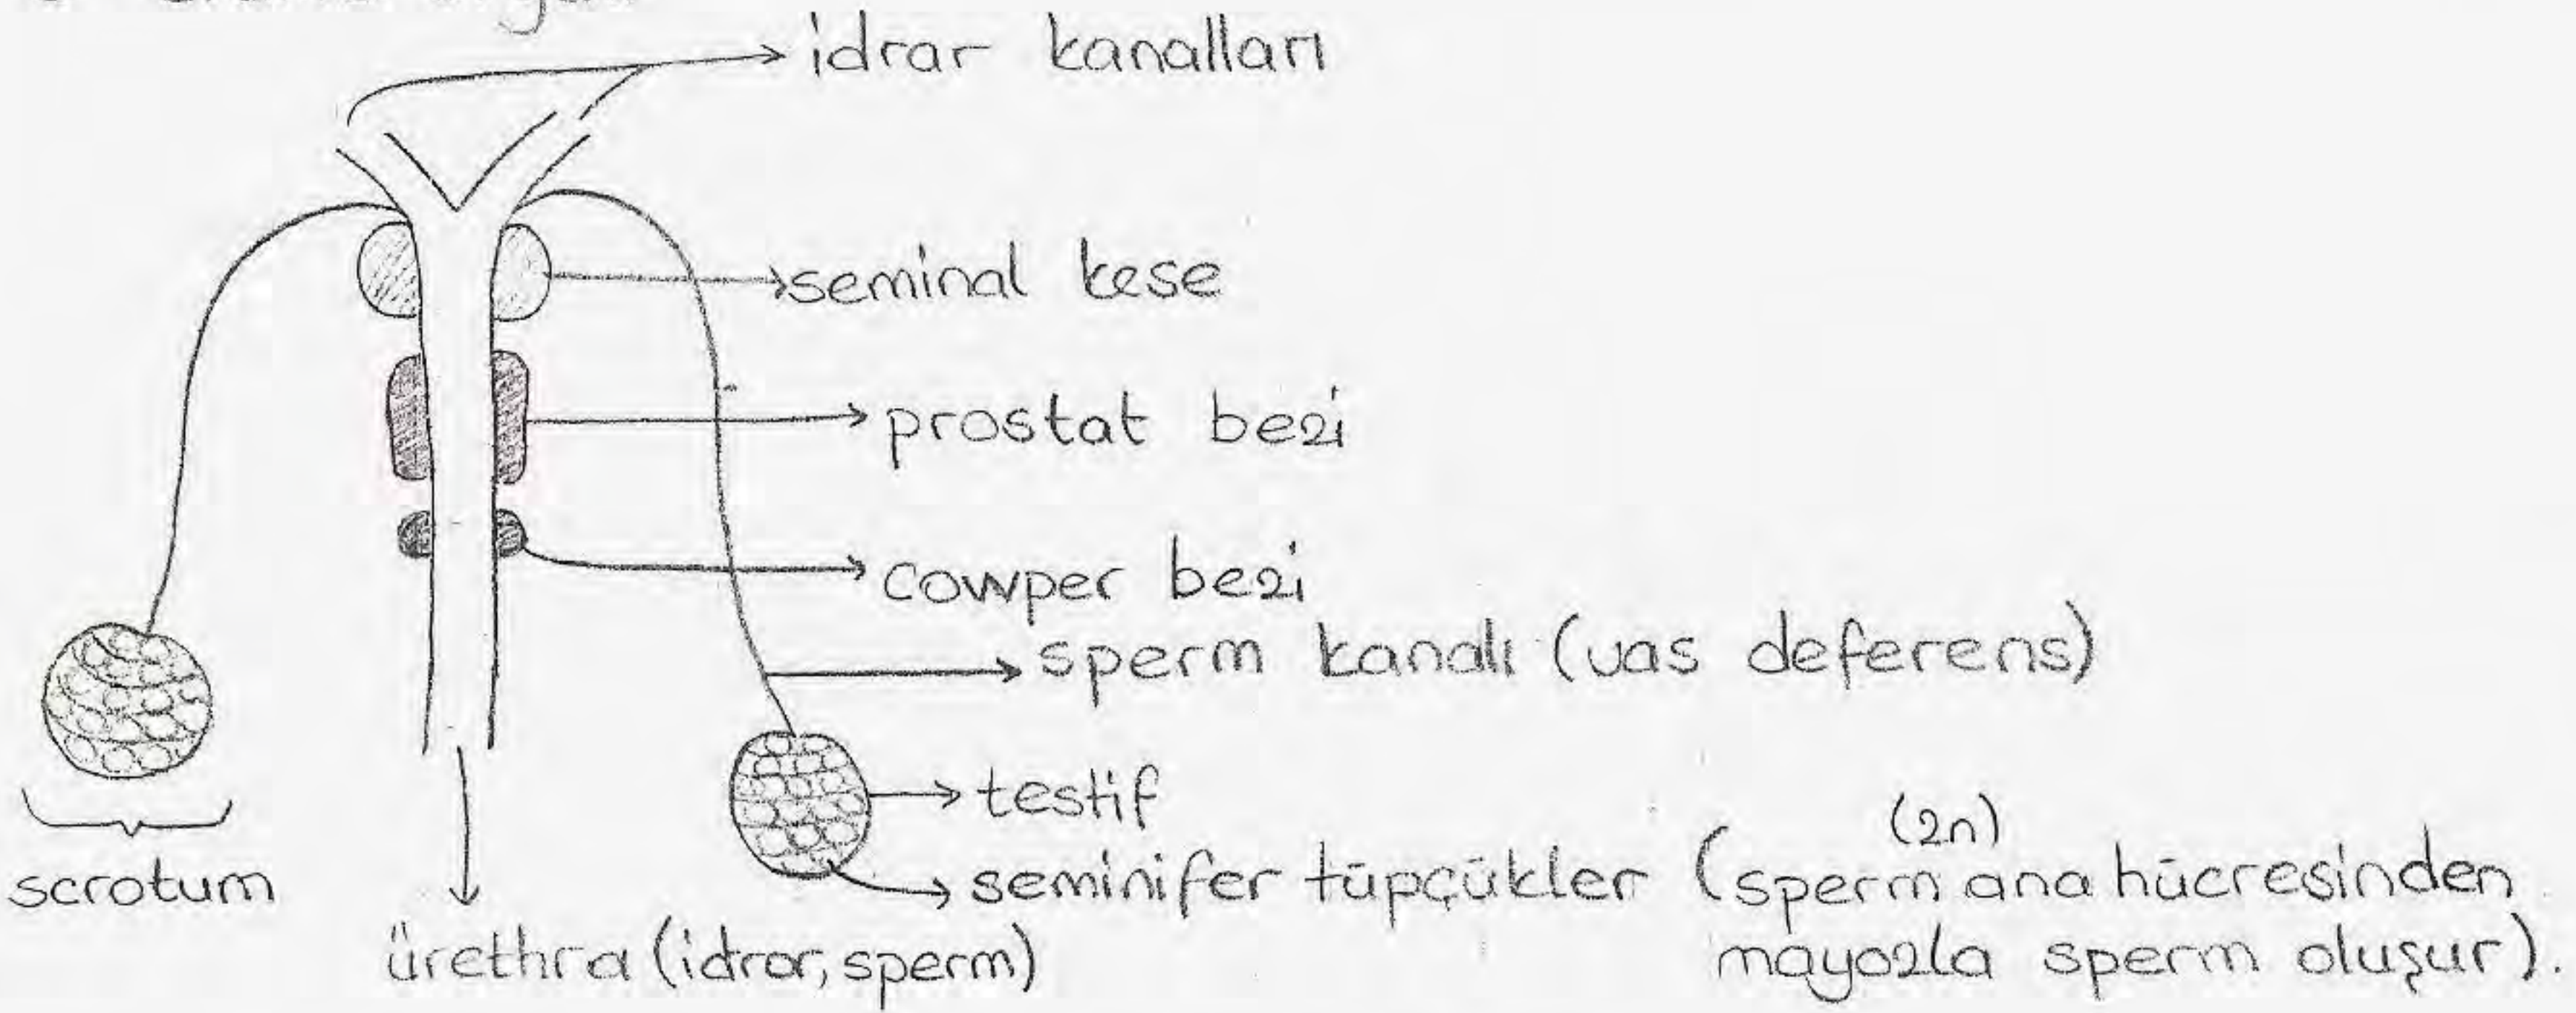 idrar kanalları
seminal kese
prostat bezi
cowper bezi
sperm kanalı (vas deferens)
testif
(2n)
seminifer tüpçükler (sperm ana hücresinden
mayozla sperm oluşur).
scrotum
ürethra (idrar, sperm)